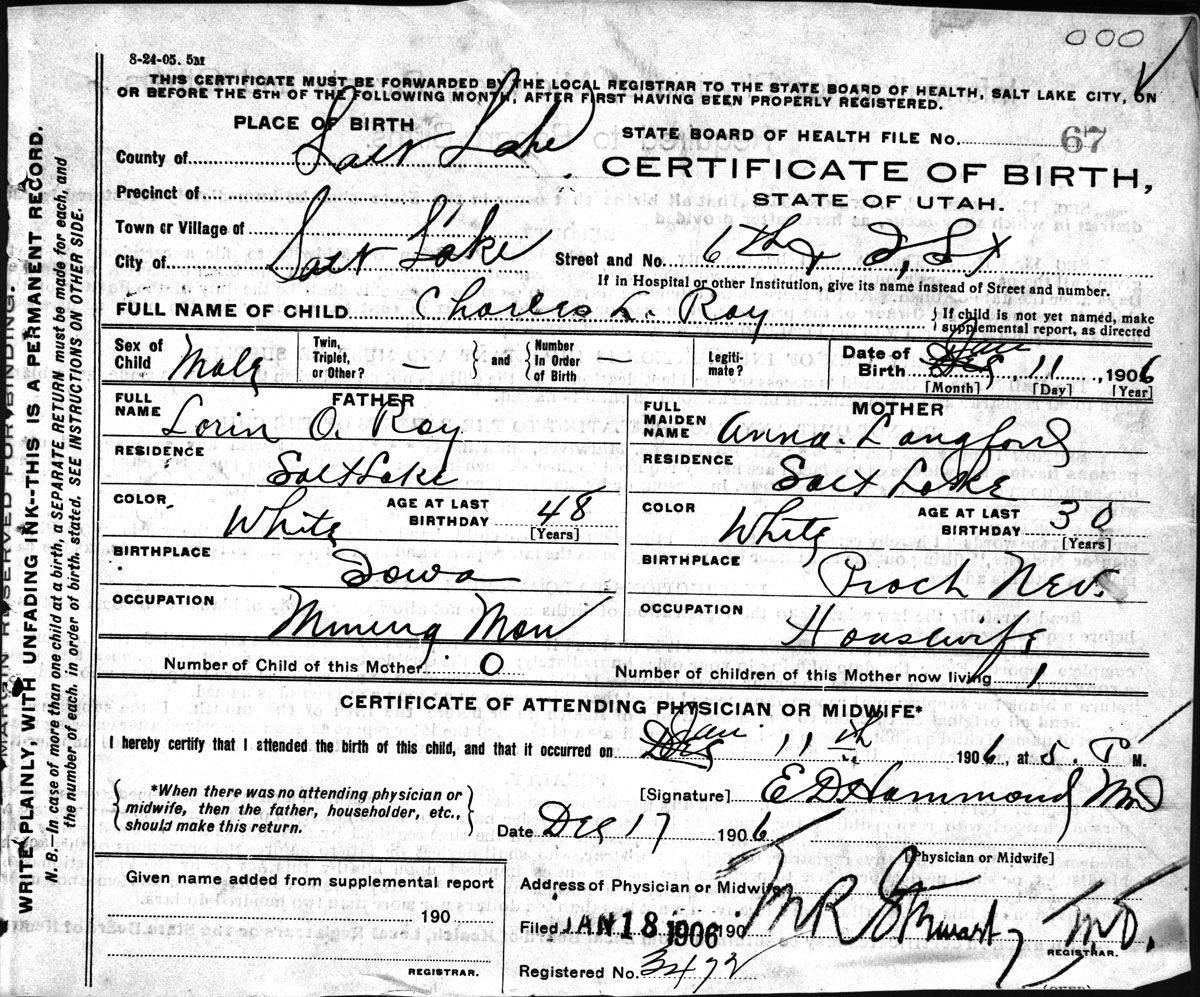 000
8-24-05. 5M
THIS CERTIFICATE MUST BE FORWARDED BY THE LOCAL REGISTRAR TO THE STATE BOARD OF HEALTH, SALT LAKE CITY, ON
OR BEFORE THE 5TH OF THE FOLLOWING MONTH, AFTER FIRST HAVING BEEN PROPERLY REGISTERED.
PLACE OF BIRTH
STATE BOARD OF HEALTH FILE No. 67
County of Salt Lake
CERTIFICATE OF BIRTH,
STATE OF UTAH.
Precinct of
Town or Village of
City of Salt Lake
Street and No. 6th & 2, St
If in Hospital or other Institution, give its name instead of Street and number.
FULL NAME OF CHILD Charles L. Ray
If child is not yet named, make supplemental report, as directed
Sex of Child Male
Twin, Triplet, or Other? –
and Number In Order of Birth
Legitimate?
Date of Birth Dec Jan, 11, 1906
[Month] [Day] [Year]
FATHER
FULL NAME Lorin O. Ray
RESIDENCE Salt Lake
COLOR White
AGE AT LAST BIRTHDAY 48
[Years]
BIRTHPLACE Iowa
OCCUPATION Mining Man
MOTHER
FULL MAIDEN NAME Anna. Langford
RESIDENCE Salt Lake
COLOR White
AGE AT LAST BIRTHDAY 30
[Years]
BIRTHPLACE Pioch Nev.
OCCUPATION Housewife
Number of Child of this Mother 0
Number of children of this Mother now living 1
CERTIFICATE OF ATTENDING PHYSICIAN OR MIDWIFE*
I hereby certify that I attended the birth of this child, and that it occurred on Dec Jan 11th 1906, at 5. P M.
*When there was no attending physician or midwife, then the father, householder, etc., should make this return.
[Signature] E D. Hammond MD
Date Dec 17 1906
[Physician or Midwife]
Given name added from supplemental report
190
REGISTRAR.
Address of Physician or Midwife
Filed JAN 18 1906 190
M R Stewart, M.D.
REGISTRAR.
Registered No. 3472
(OVER)
MARGIN RESERVED FOR BINDING.
WRITE PLAINLY WITH UNFADING INK--THIS IS A PERMANENT RECORD.
N. B.—In case of more than one child at a birth, a SEPARATE RETURN must be made for each, and
the number of each, in order of birth, stated. SEE INSTRUCTIONS ON OTHER SIDE.